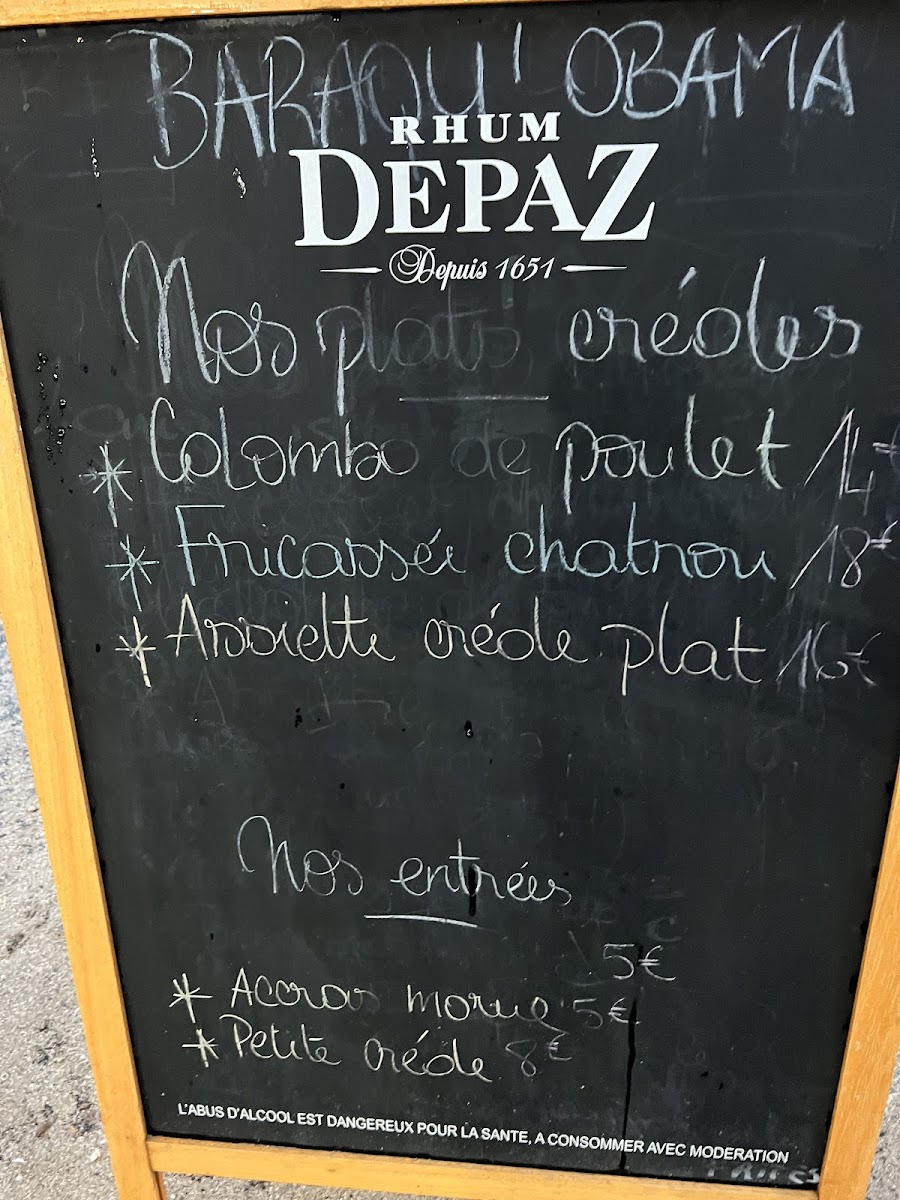 BARAQU'OBAMA
RHUM
DEPAZ
Depuis 1651
Nos plats créoles
* Colombo de poulet 14€
* Fricassée chatrou 18€
* Assiette créole plat 16€
Nos entrées
5€
* Accras morue 5€
* Petite créole 8€
L'ABUS D'ALCOOL EST DANGEREUX POUR LA SANTE, A CONSOMMER AVEC MODERATION